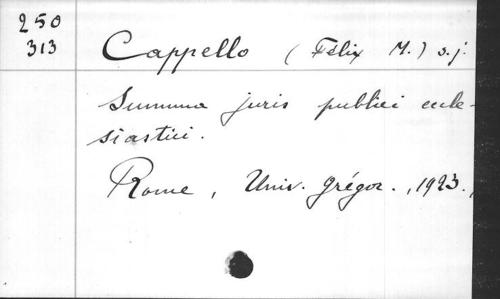 250
313
Cappello (Félix M.) s.j.
Summa juris publici eccle-
siastici.
Rome, Univ. Grégor., 1923,